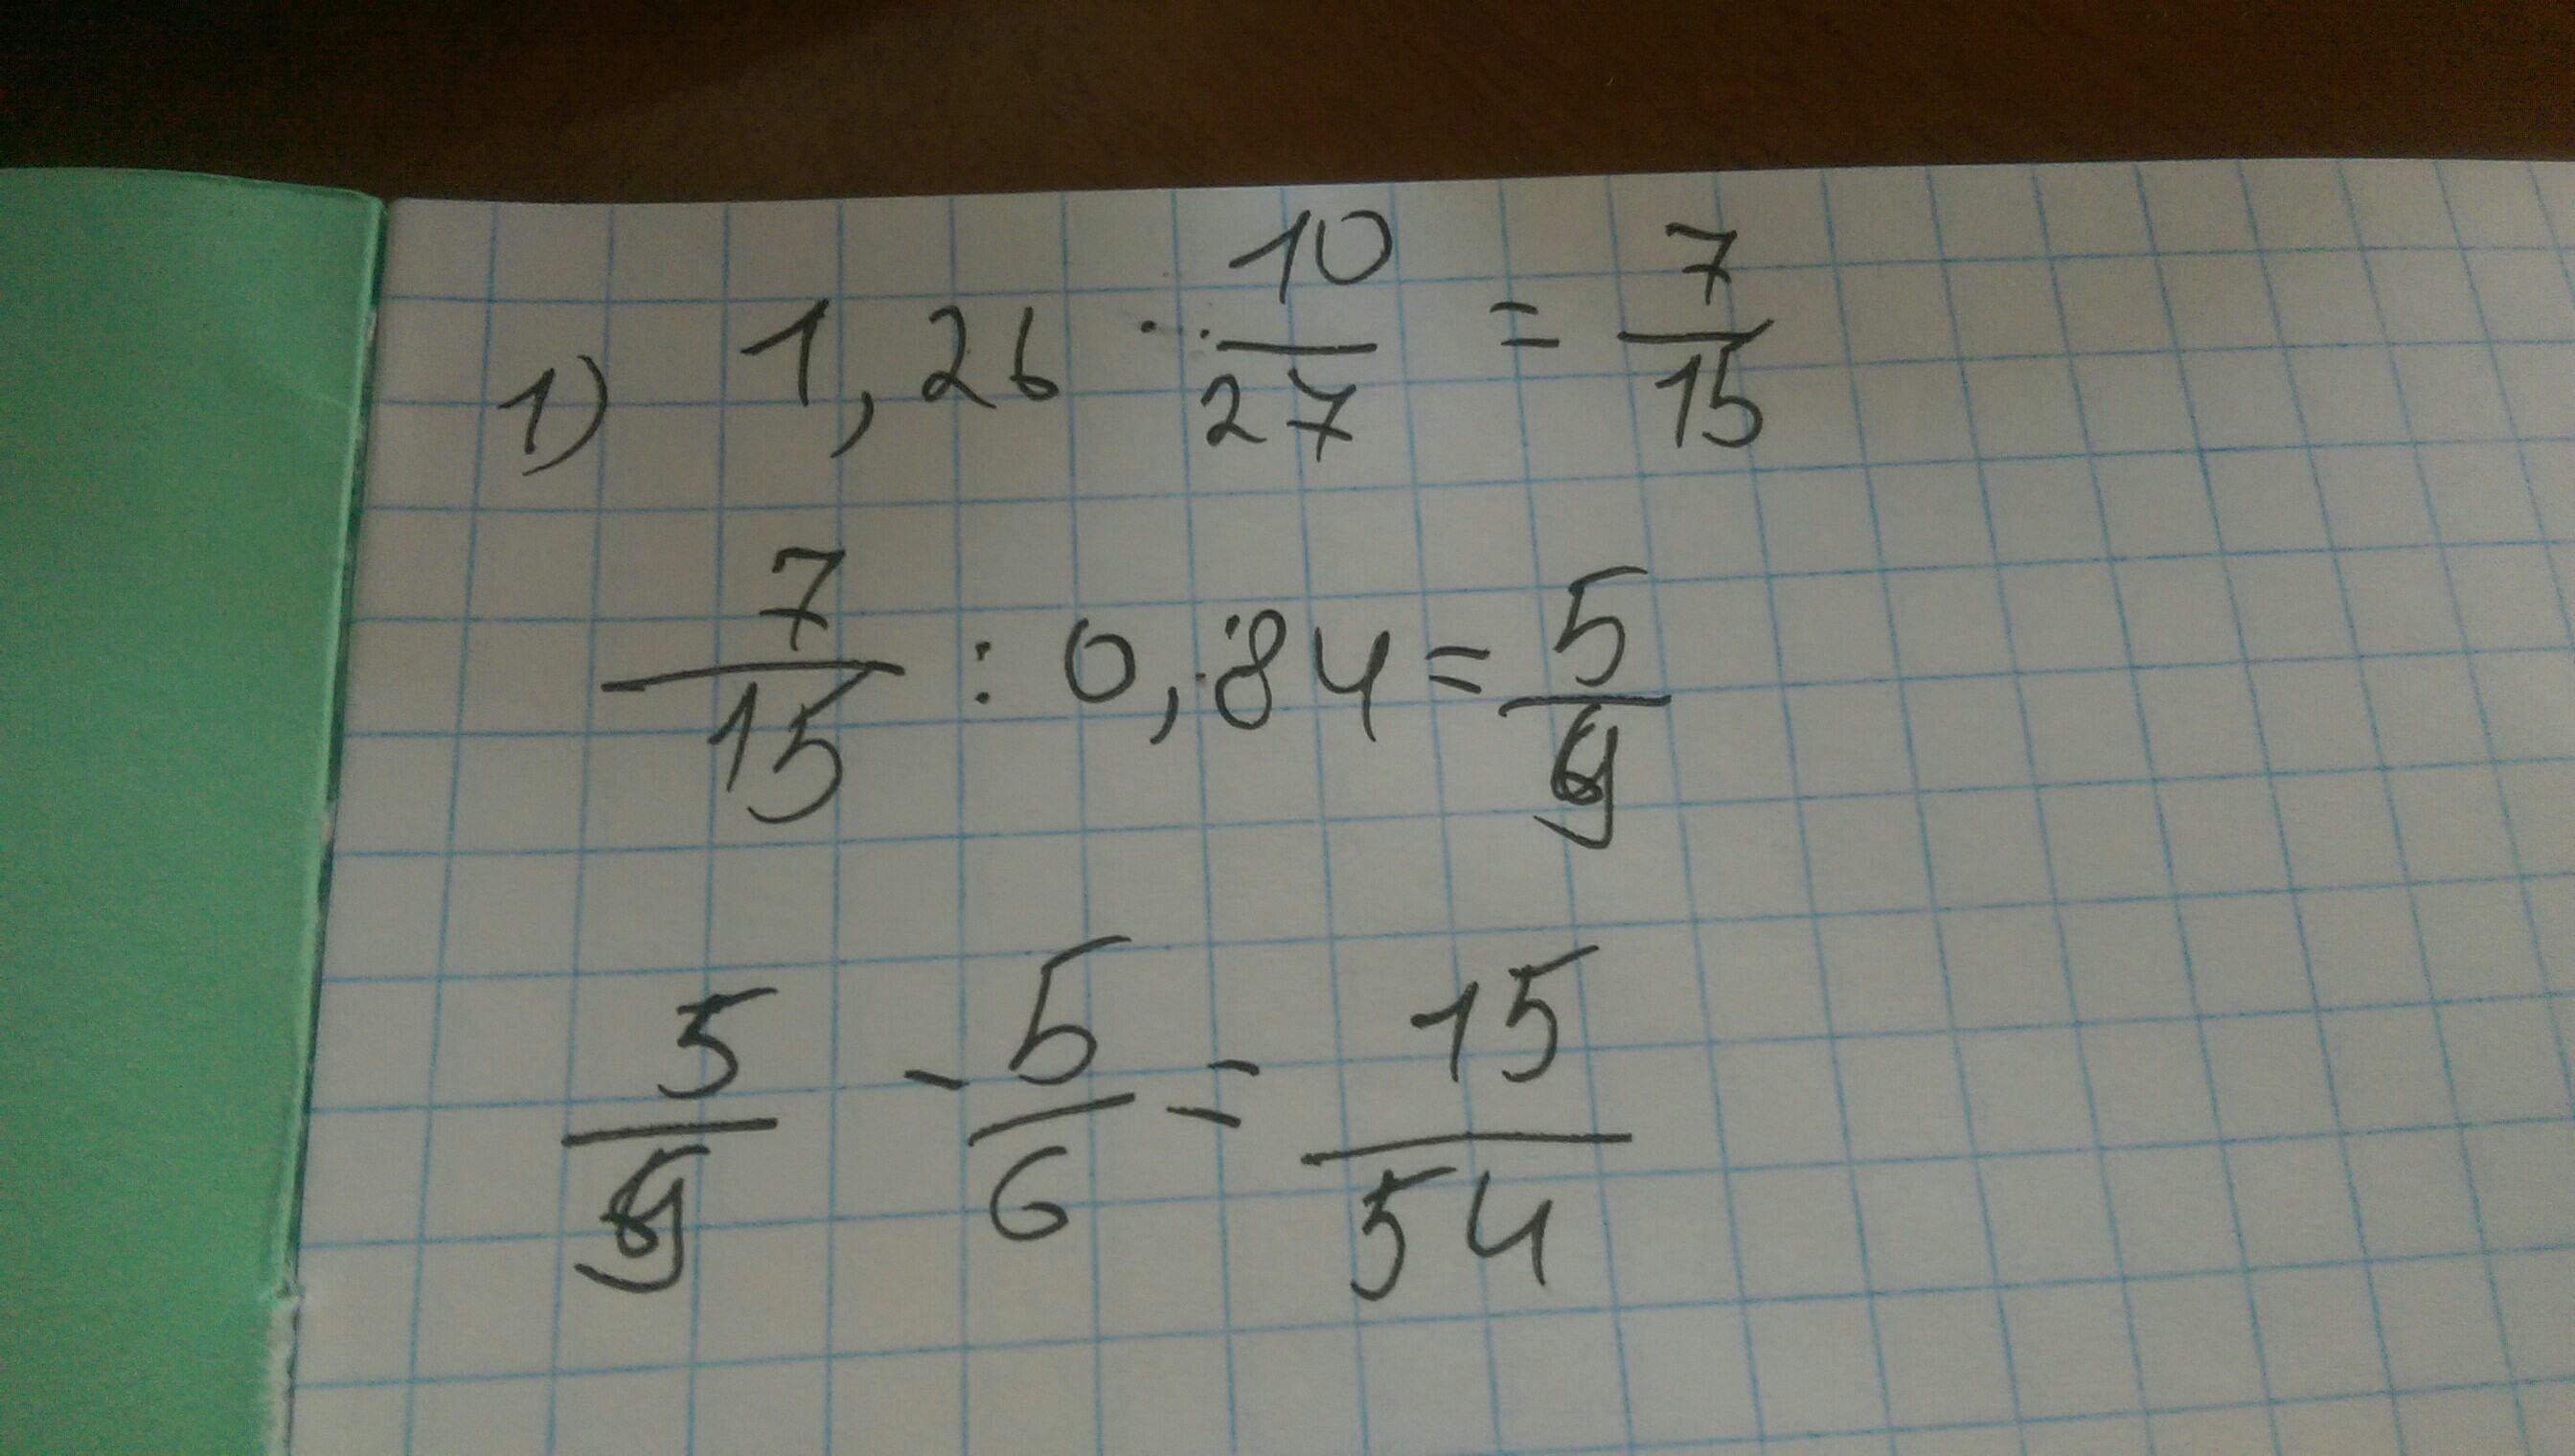 1) 1,26 · 10/27 = 7/15
7/15 : 0,84 = 5/9
5/9 - 5/6 = 15/54